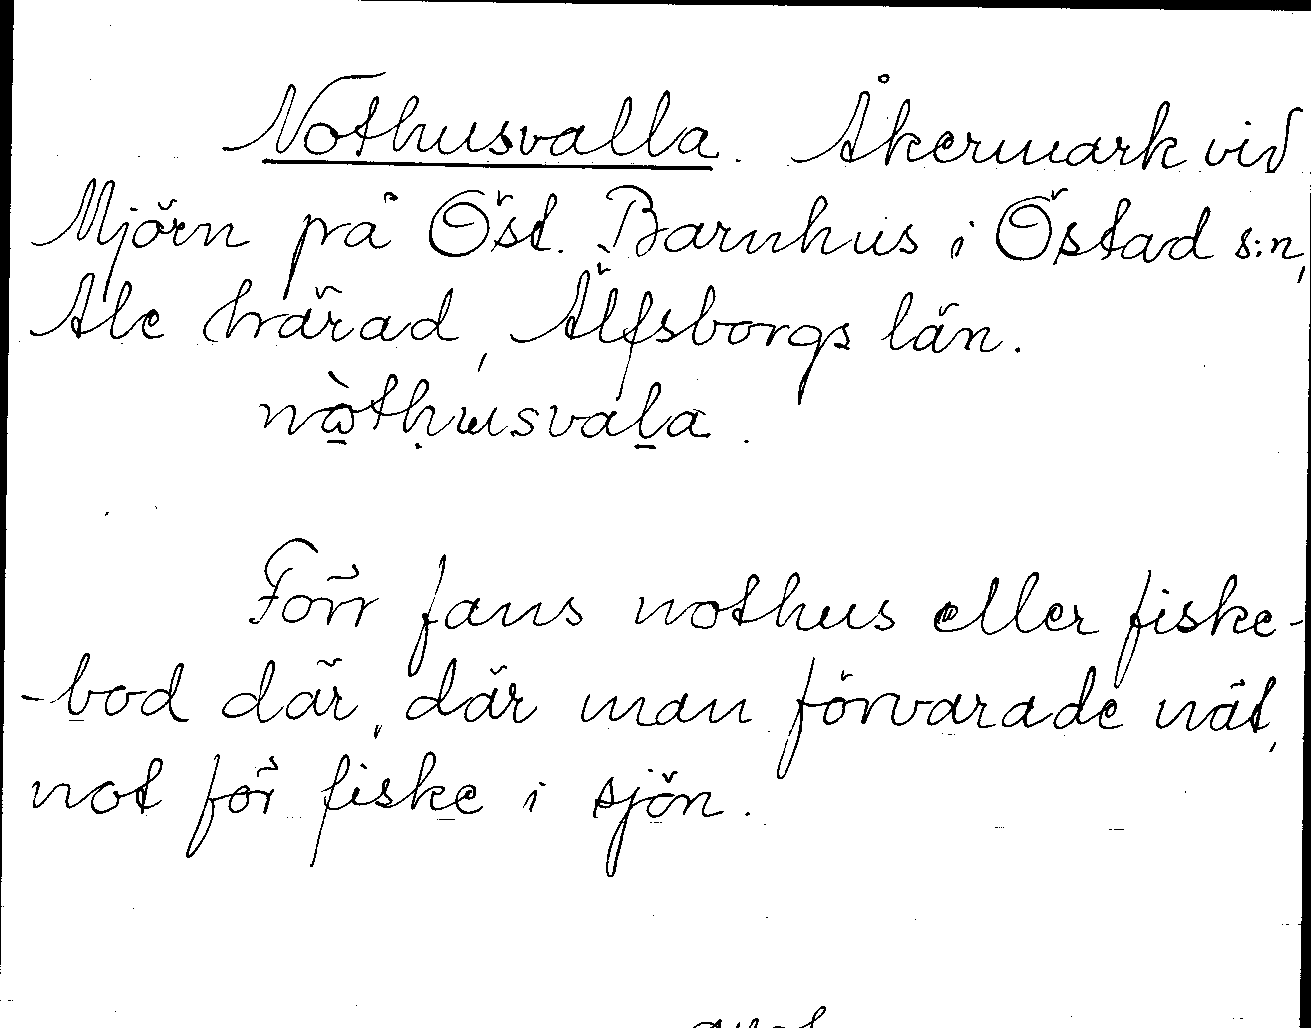 Nothusvalla. Åkermark vid
Mjörn på Öst. Barnhus i Östad s:n,
Ale härad, Älfsborgs län.
nò̱tḥusvaḻa.
Förr fans nothus eller fiske-
-bod där, där man förvarade nät,
not för fiske i sjön.